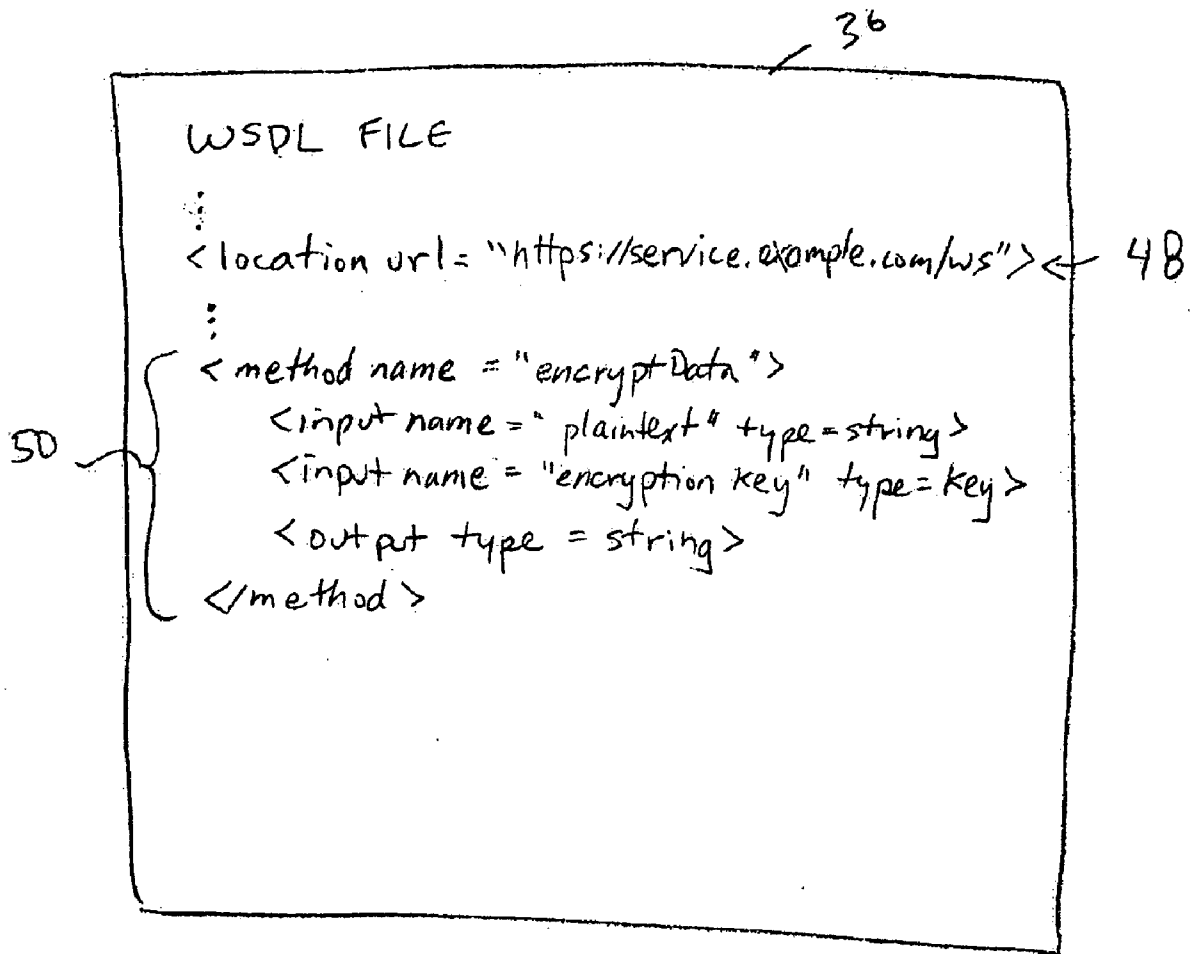 36
WSDL FILE
⋮
<location url="https://service.example.com/ws"> 48
⋮
<method name = "encryptData">
<input name = "plaintext" type = string>
50
<input name = "encryption key" type = key>
<output type = string>
</method>